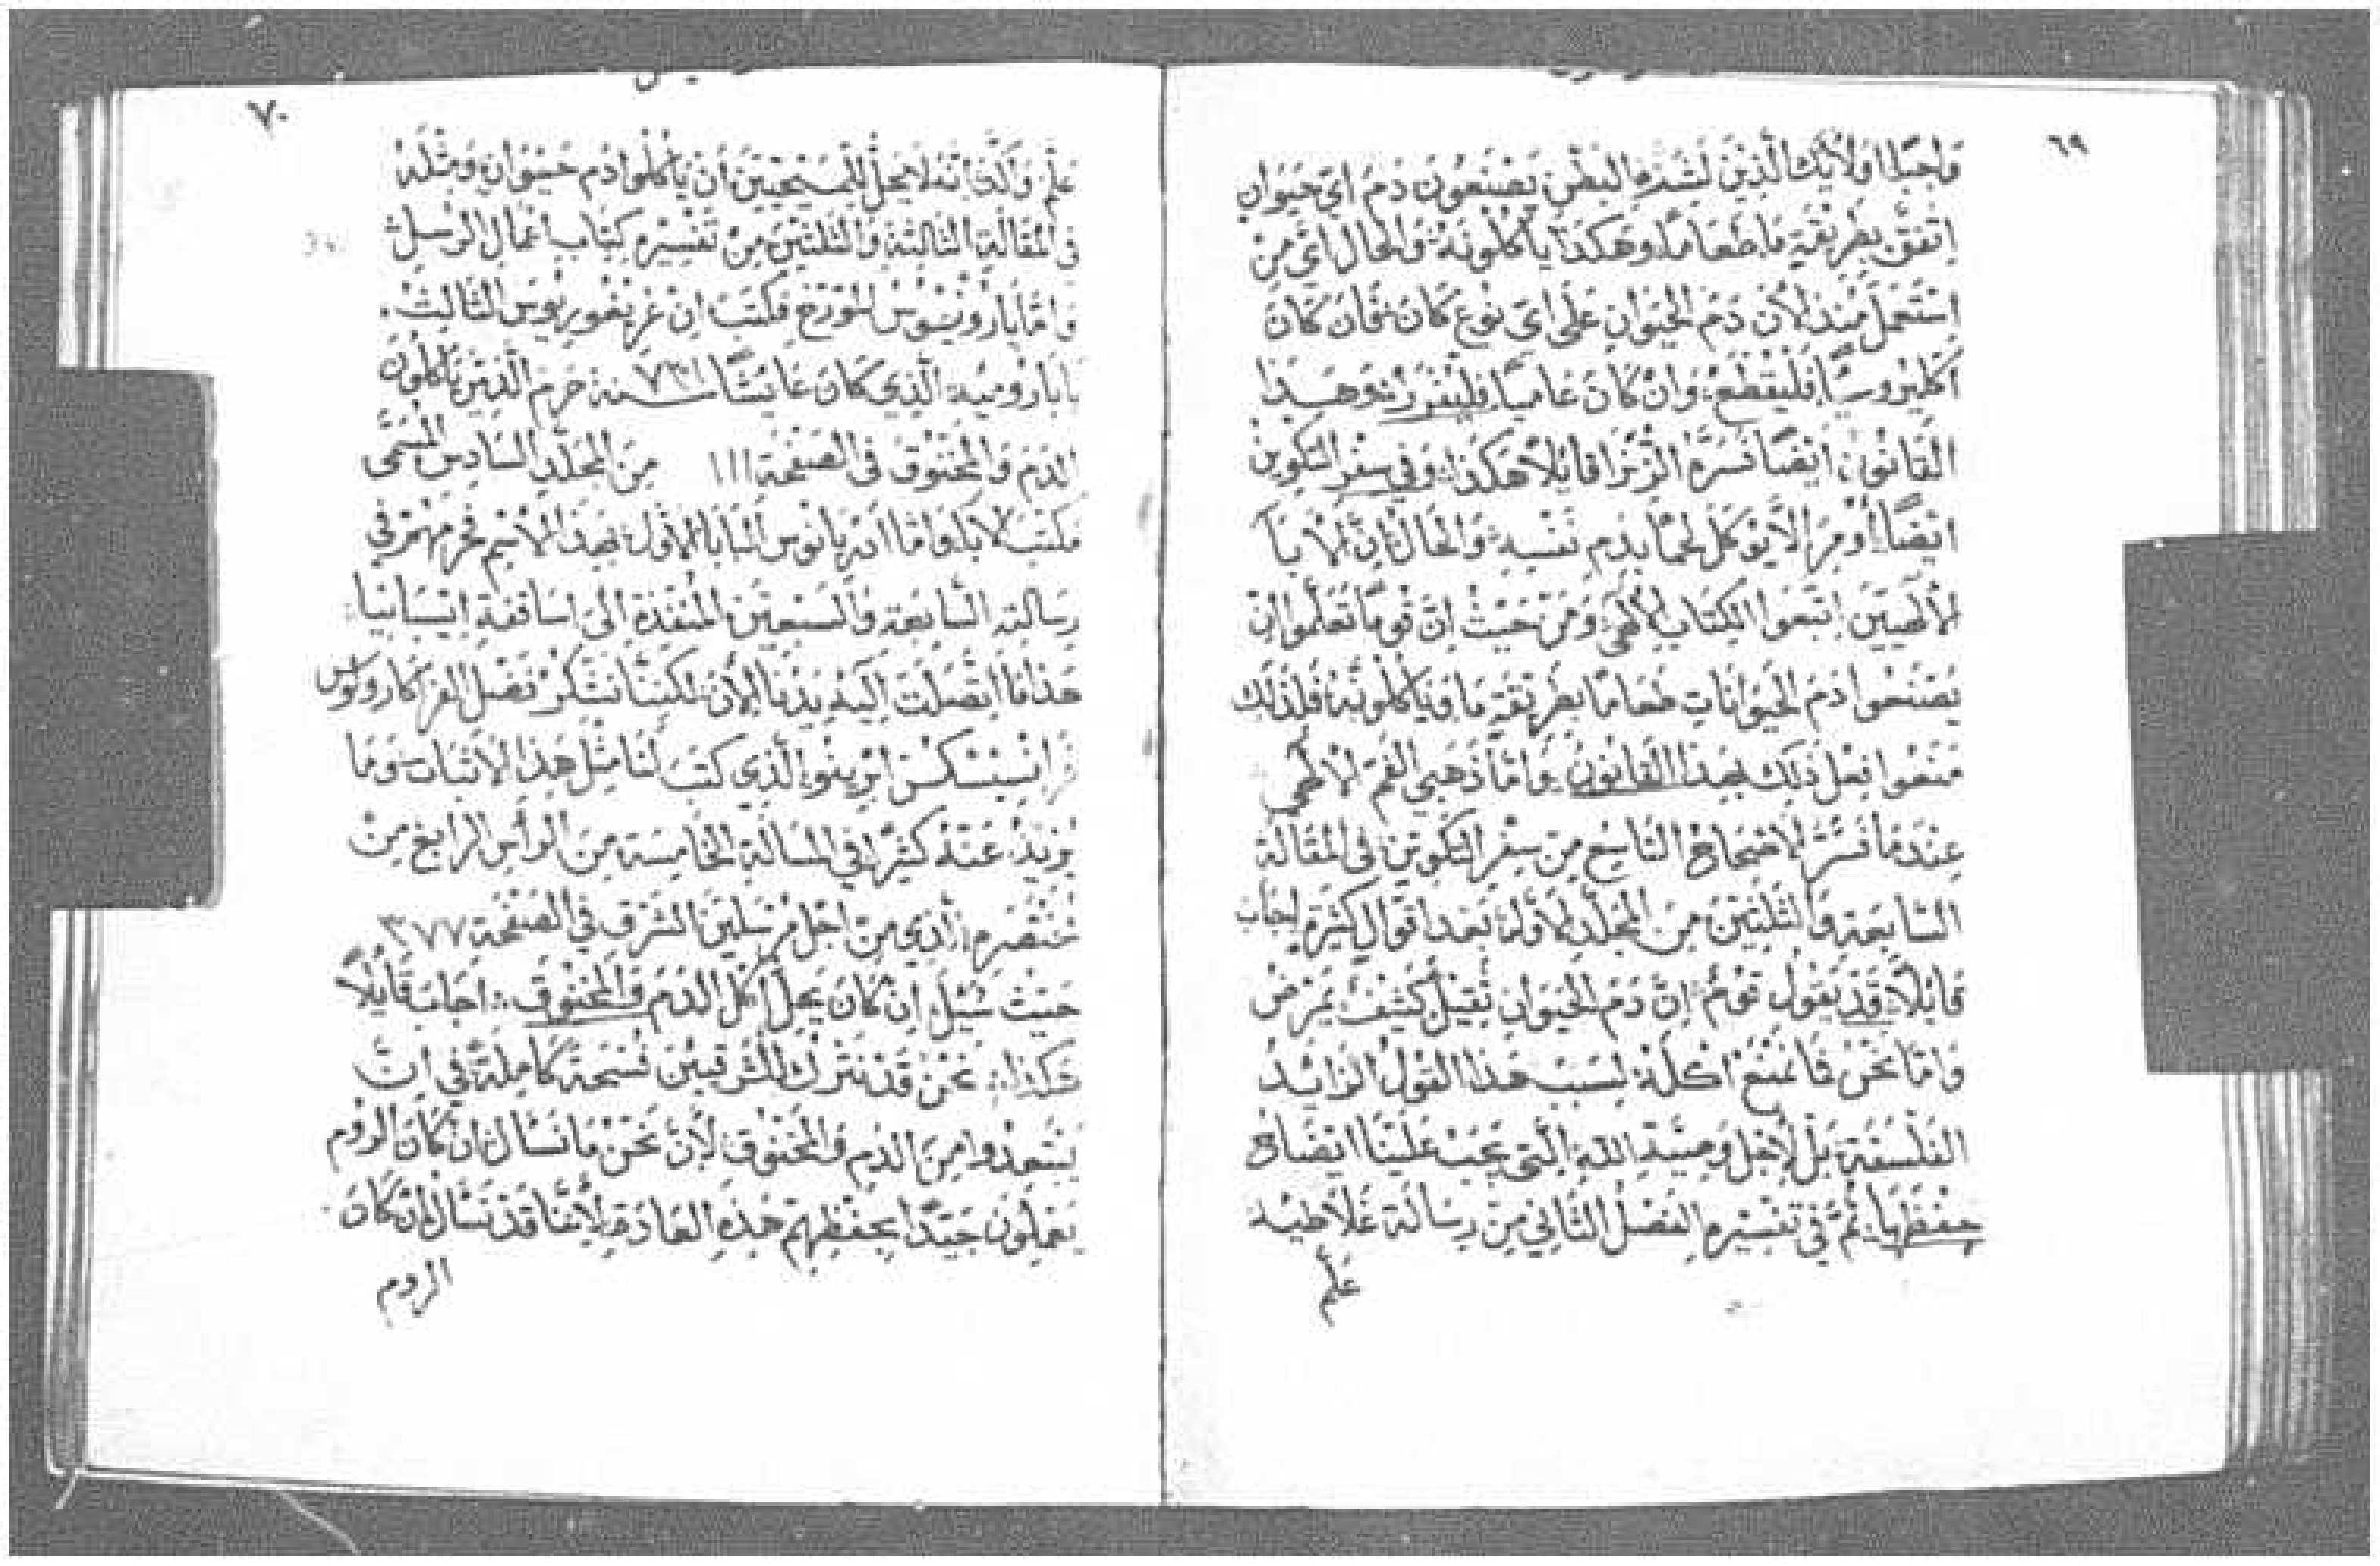 ٦٩
واجبًا اولايك الذين لشده البطن يصنعون دم اي حيوان
اتفق بطريقة ما طعامًا وهكذا ياكلونه والحال اي من
استعمل منذ الان دم الحيوان على اي نوع كان فان كان
اكليروسيًا فليقطع وان كان عاميًا فليفرز وهذا
القانون ايضًا فسره الزنرا قايلاً هكذا وفي سفر التكوين
ايضًا أومر الا يوكل لحمًا بدم نفسه والحال ان الابآ
الالهيين اتبعوا الكتاب الالهي ومن حيث ان قومًا تعلموا ان
يصنعوا دم الحيوانات طعامًا بطريقة ما وياكلونه فلذلك
منعوا فعل ذلك بهذا القانون واما ذهبي الفم الالهي
عندما فسر الاصحاح التاسع من سفر التكوين في المقالة
السابعة والثلثين من المجلد الاول بعد اقوال كثيره اجاب
قايلاً قد يقول قوم ان دم الحيوان ثقيل كثيف يمرض
واما نحن فا نمنع اكله لسبب هذا القول الزايد
الفلسفة بل لاجل وصية الله التي يجب علينا ايضاح
حفظها ثم في تفسيره الفصل الثاني من رسالة غلاطيه
علّم
٧٠
علّم واكد انه لا يحل للمسيحيين ان ياكلوا دم حيوان ومثله
في المقالة الثالثة والثلثين من تفسيره كتاب اعمال الرسل
واما بارونيوس المورخ فكتب ان غريغوريوس الثالث
بابا رومية الذي كان عايشًا سنة ٧٣١ حرم الذين ياكلون
الدم والمخنوق في الصفحة ١١١ من المجلد السادس المسمى
فكتب لابا واما ادريانوس البابا الاول بهذا الاسم فحرمهم في
رسالته السابعة والسبعين المنفذة الى اساقفة اسبانيا
هذا ما اتصلت اليه يدنا الان لكننا نشكر فضل كارولوس
فرانسيسكس الذي كتب لنا مثل هذا الاثبات وما
يزيد عنه كثيرًا في المسالة الخامسة من الراس الرابع من
مختصره الذي من اجل مرسلين الشرق في الصفحة ٣٧٧
حيث سُيل ان كان يحل اكل الدم والمخنوق اجاب قايلاً
هكذا نحن قد نترك للشرقيين فسحة كاملة في ان
يبتعدوا من الدم والمخنوق لان نحن ما نسال ان كان الروم
يعملون جيدًا بحفظهم هذه العادة لاننا قد نسال ان كان
الروم